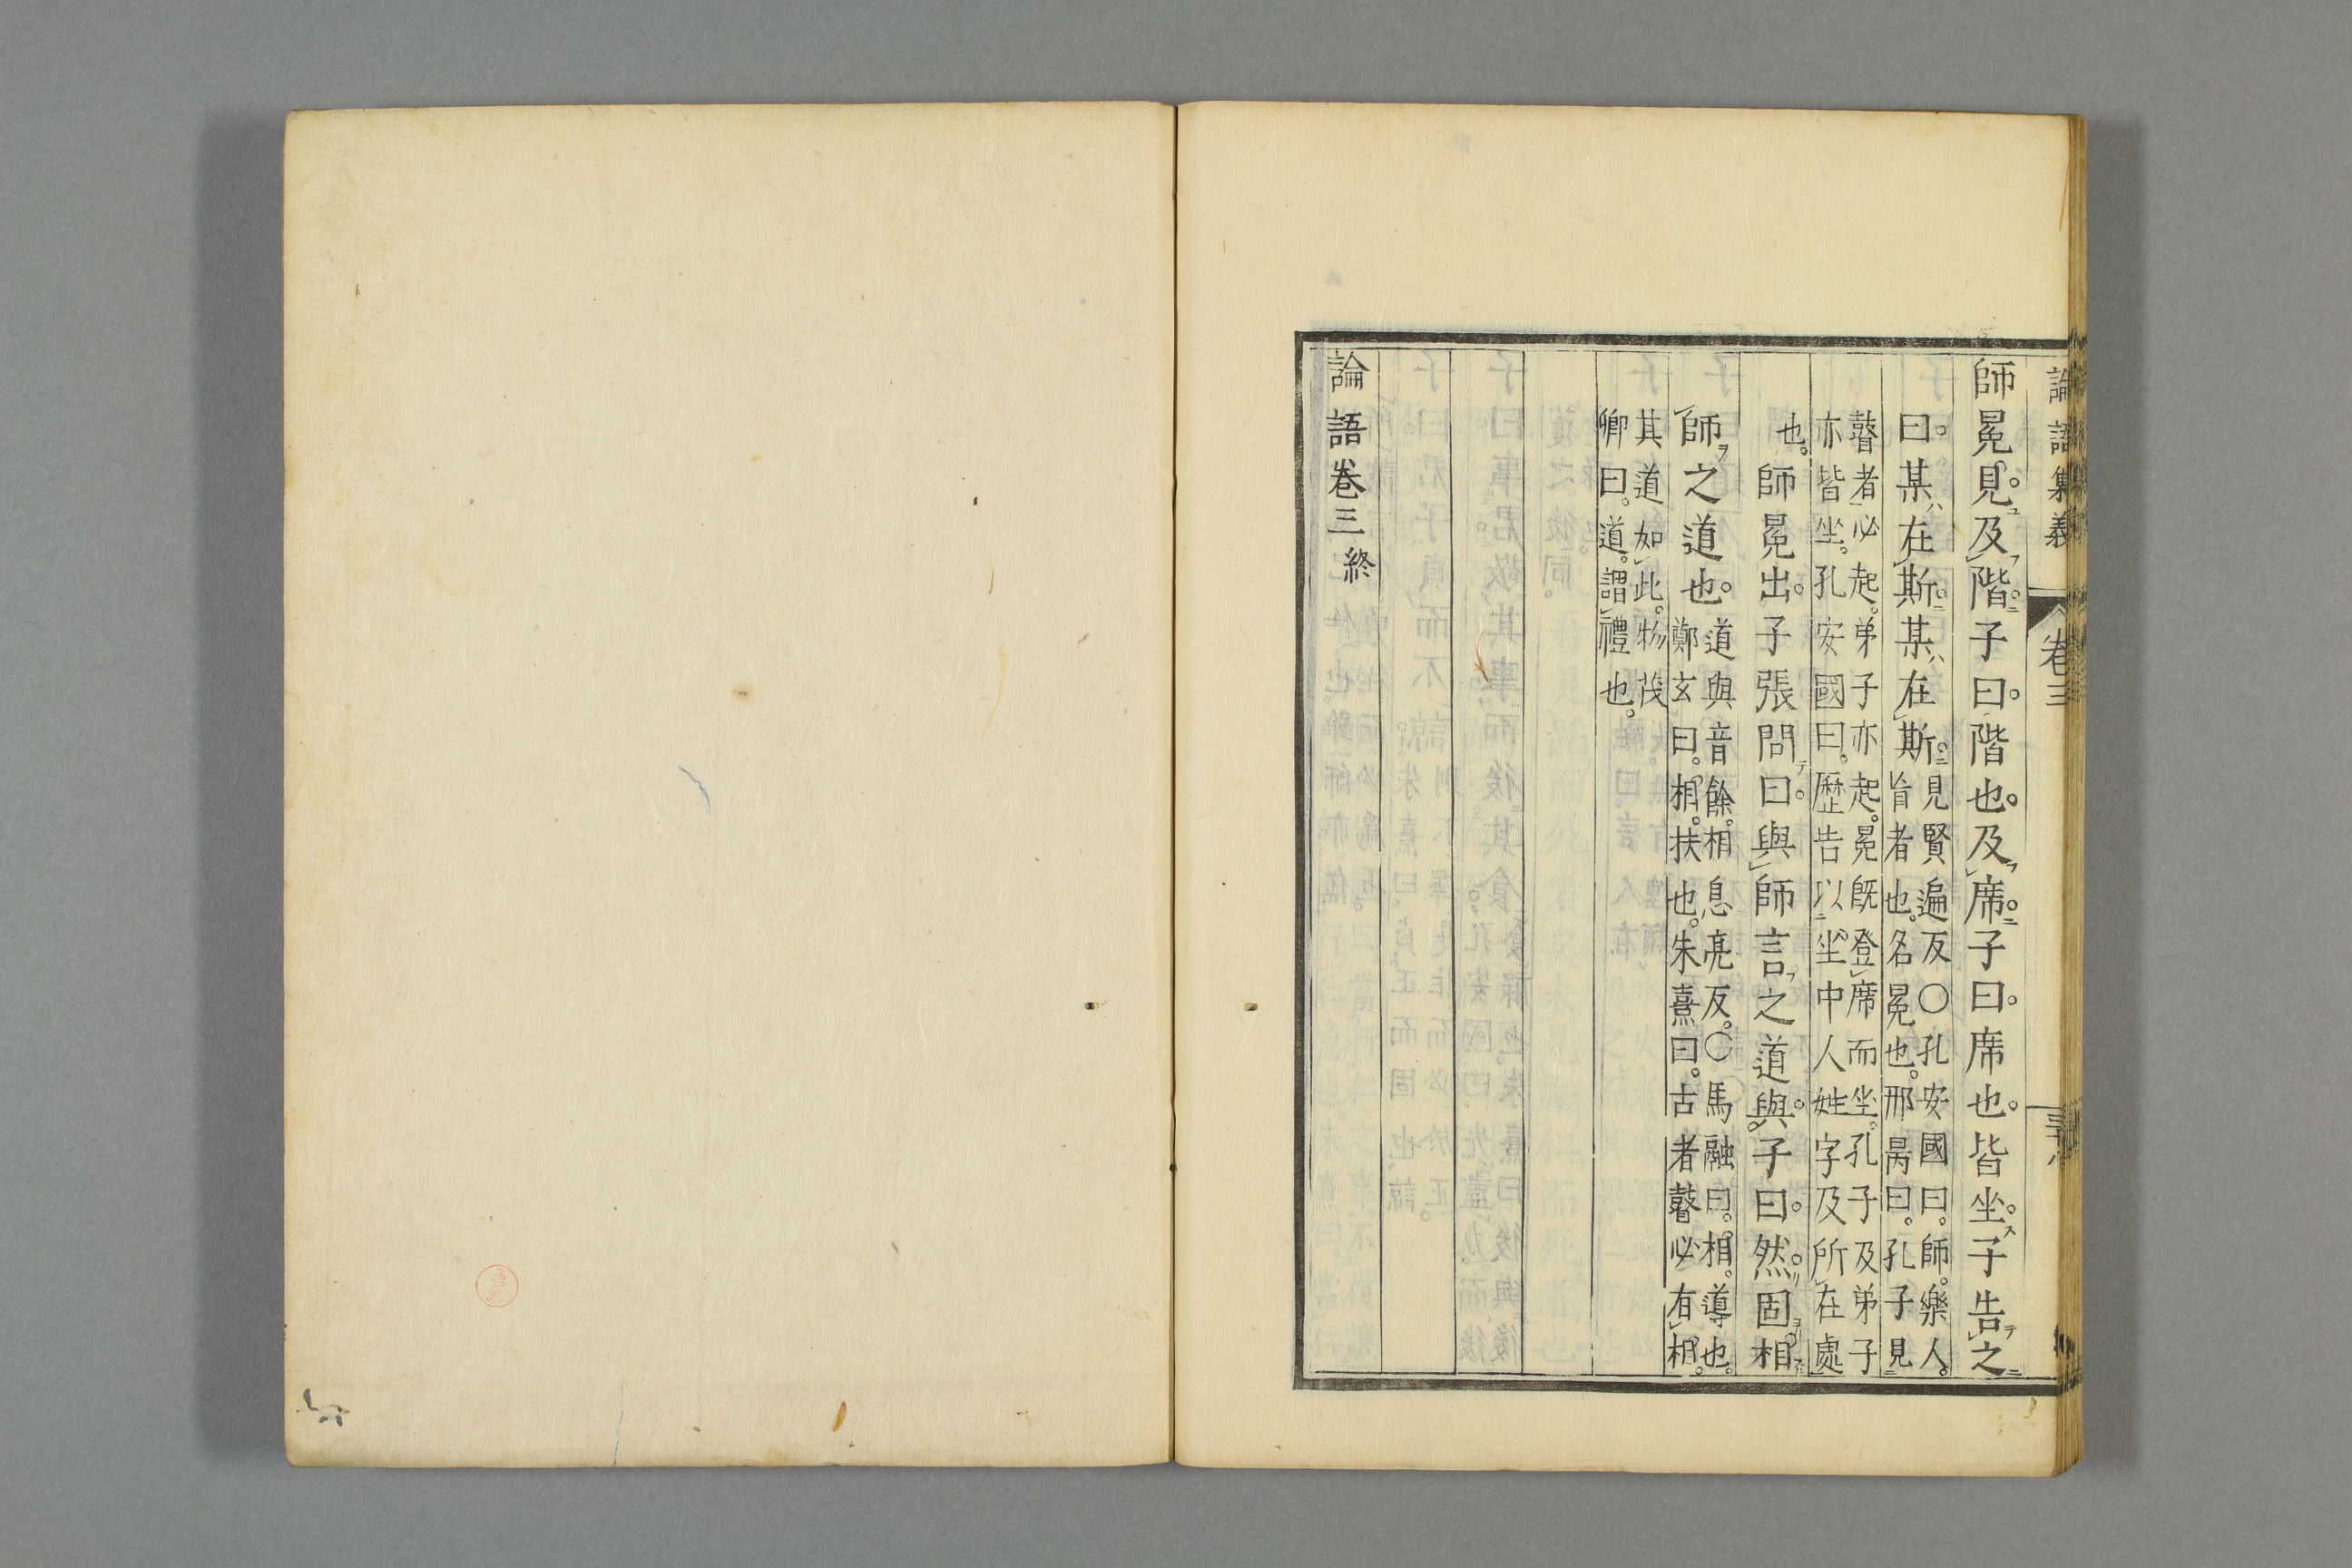 論語集義 卷三
師冕見。及階。子曰。階也。及席。子曰。席也。皆坐。子告之
曰。某在斯。某在斯。
見賢遍反〇孔安國曰。師。樂人。
盲者也。名冕也。邢昺曰。孔子見
瞽者必起。弟子亦起。冕既登席而坐。孔子及弟子
亦皆坐。孔安國曰。歷告以坐中人姓字及所在處
也。
師冕出。子張問曰。與師言之道與。子曰。然。固相
師之道也。
道與音餘。相息亮反。〇馬融曰。相。導也。
鄭玄曰。相。扶也。朱熹曰。古者瞽必有相。
其道如此。物茂
卿曰。道。謂禮也。
論語卷三終